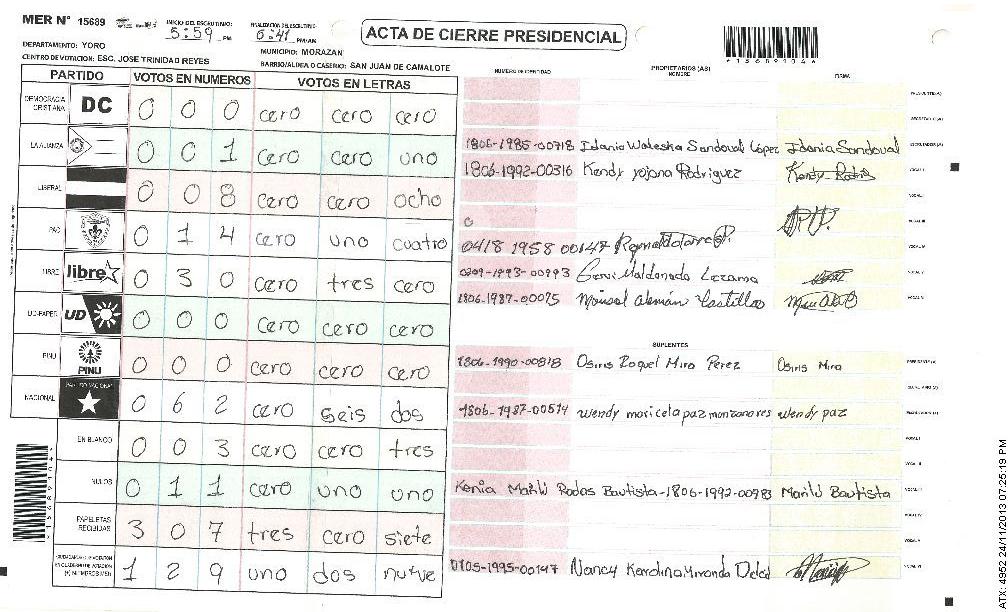 MER N° 15689
INICIO DEL ESCRUTINIO: 5:59 PM
FINALIZACION DEL ESCRUTINIO: 6:41 PM/AM
ACTA DE CIERRE PRESIDENCIAL
DEPARTAMENTO: YORO
MUNICIPIO: MORAZAN
CENTRO DE VOTACION: ESC. JOSE TRINIDAD REYES
BARRIO/ALDEA O CASERIO: SAN JUAN DE CAMALOTE
PARTIDO VOTOS EN NUMEROS VOTOS EN LETRAS
DEMOCRACIA CRISTIANA DC 0 0 0 cero cero cero
LA ALIANZA 0 0 1 cero cero uno
LIBERAL 0 0 8 cero cero ocho
PAC 0 1 4 cero uno cuatro
LIBRE libre 0 3 0 cero tres cero
UD-FAPER UD 0 0 0 cero cero cero
PINU PINU 0 0 0 cero cero cero
NACIONAL PARTIDO NACIONAL 0 6 2 cero seis dos
EN BLANCO 0 0 3 cero cero tres
NULOS 0 1 1 cero uno uno
PAPELETAS RECIBIDAS 3 0 7 tres cero siete
1 2 9 uno dos nueve
NUMERO DE IDENTIDAD PROPIETARIOS (AS) NOMBRE FIRMA
1806-1985-00718 Idania Waleska Sandoval López Idania Sandoval
1806-1992-00316 Kendy yojana Rodriguez
0418 1958 00147
0209-1993-00993 Maldonado Lezama
1806-1987-00075 Alemán Castillo
SUPLENTES
1806-1990-00818 Osiris Roquel Mira Perez Osiris Mira
1806-1987-00514 wendy maricela paz manzanares wendy paz
Kenia Marilú Rodas Bautista-1806-1992-00983 Marilú Bautista
Nancy Karolina Miranda
*15689104*
ATX: 4952 24/11/2013 07:25:19 PM